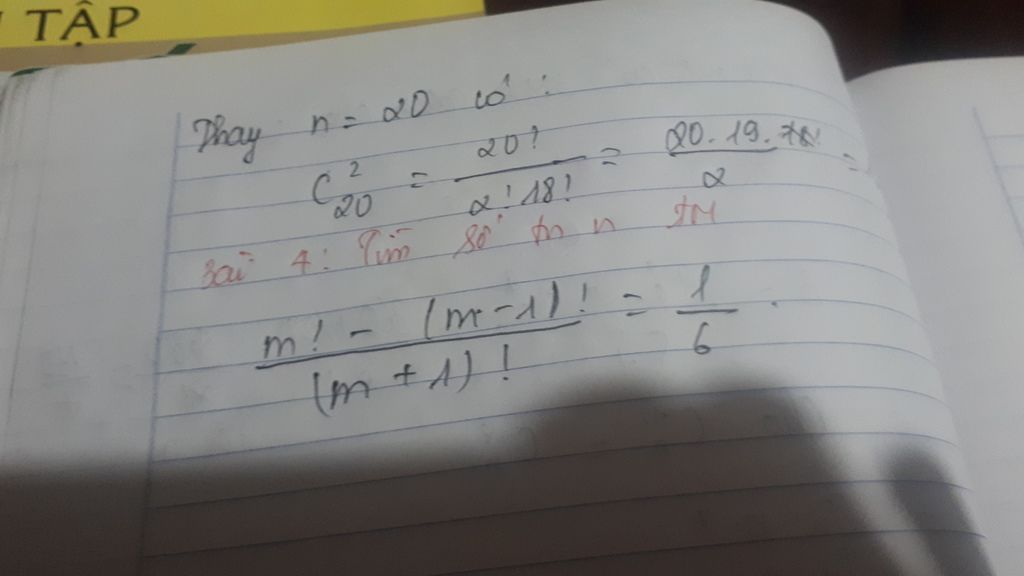 TẬP
Thay n = 20 có :
C²₂₀ = 20! / 2! 18! = 20. 19. / 2 =
Bài 4: Tìm số m n TM
m! - (m-1)! / (m+1)! = 1 / 6 .